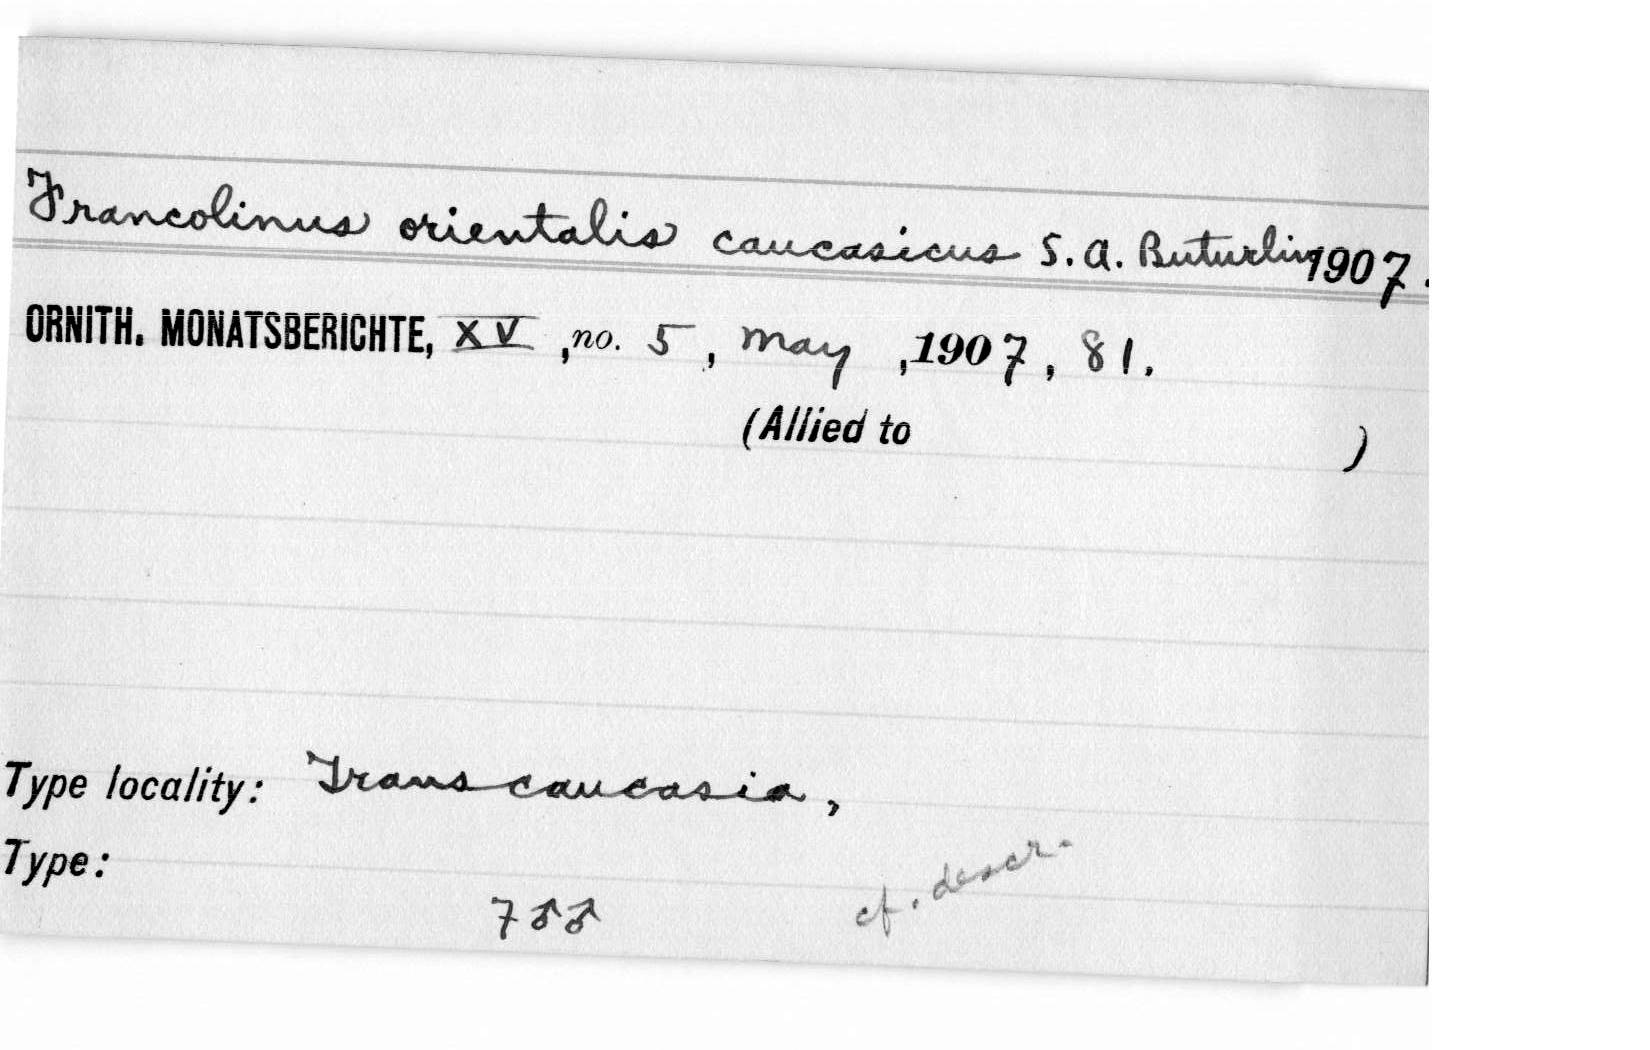 Francolinus orientalis caucasicus S. A. Buturlin 1907.
ORNITH. MONATSBERICHTE, XV, no. 5, May, 1907, 81.
(Allied to )
Type locality: Transcaucasia,
Type:
7♂♂
cf. descr.